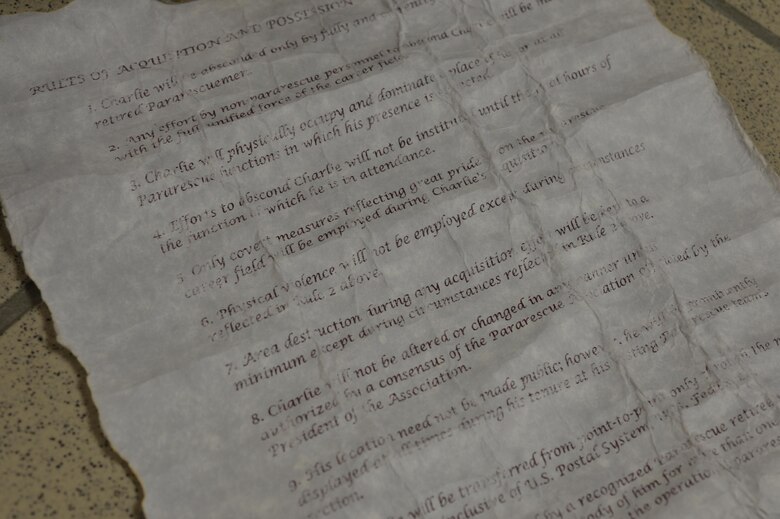 RULES OF ACQUISITION AND POSSESSION
1. Charlie will be absconded only by fully and
retired Pararescuemen.
2. Any effort by non pararescue personnel to abscond Charlie will be met
with the full unified force of the career field.
3. Charlie will physically occupy and dominate place of honor at all
Pararescue functions in which his presence is
4. Efforts to abscond Charlie will not be instituted until the hours of
the function in which he is in attendance.
5. Only covert measures reflecting great pride on the Pararescue
career field will be employed during Charlie's acquisition.
6. Physical violence will not be employed except during circumstances
reflected in Rule 2 above.
7. Area destruction during any acquisition effort will be kept to a
minimum except during circumstances reflected in Rule 2 above.
8. Charlie will not be altered or changed in any manner unless
authorized by a consensus of the Pararescue Association by the
President of the Association.
9. His location need not be made public; however, he will be prominently
displayed at all times during his tenure at his Pararescue team
section.
will be transferred from point-to-point only through the
inclusive of U.S. Postal System,
by a recognized Pararescue
of him for more than one
the operational